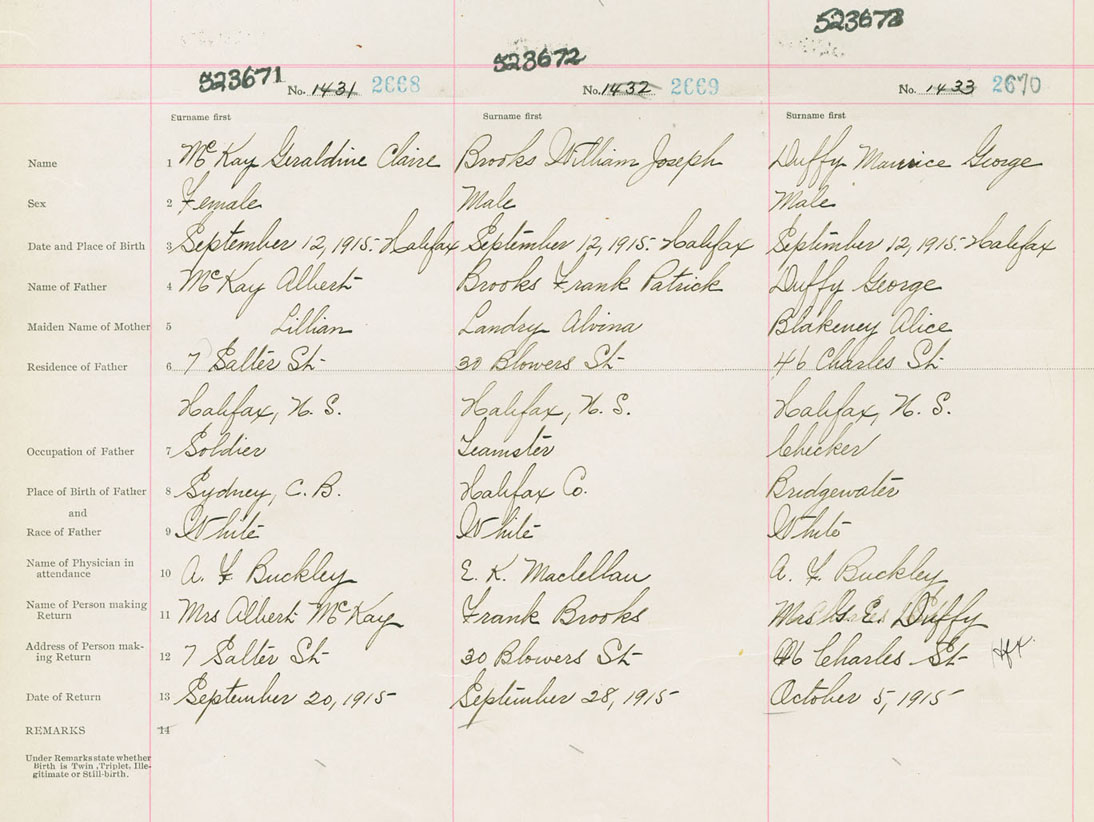 523673
523672
523671 No. 1431 2668 No. 1432 2669 No. 1433 2670
Surname first Surname first Surname first
Name 1 McKay Geraldine Claire Brooks William Joseph Duffy Maurice George
Sex 2 Female Male Male
Date and Place of Birth 3 September 12, 1915. Halifax September 12, 1915. Halifax September 12, 1915. Halifax
Name of Father 4 McKay Albert Brooks Frank Patrick Duffy George
Maiden Name of Mother 5 Lillian Landry Alvina Blakeney Alice
Residence of Father 6 7 Salter St 30 Blowers St 46 Charles St
Halifax, N. S. Halifax, N. S. Halifax, N. S.
Occupation of Father 7 Soldier Teamster Checker
Place of Birth of Father 8 Sydney, C. B. Halifax Co. Bridgewater
and
Race of Father 9 White White White
Name of Physician in
attendance 10 A. F Buckley E. K. Maclellan A. F. Buckley
Name of Person making
Return 11 Mrs Albert McKay Frank Brooks Mrs G E Duffy
Address of Person mak-
ing Return 12 7 Salter St 30 Blowers St 46 Charles St Hfx
Date of Return 13 September 20, 1915 September 28, 1915 October 5, 1915
REMARKS 14
Under Remarks state whether
Birth is Twin, Triplet, Ille-
gitimate or Still-birth.